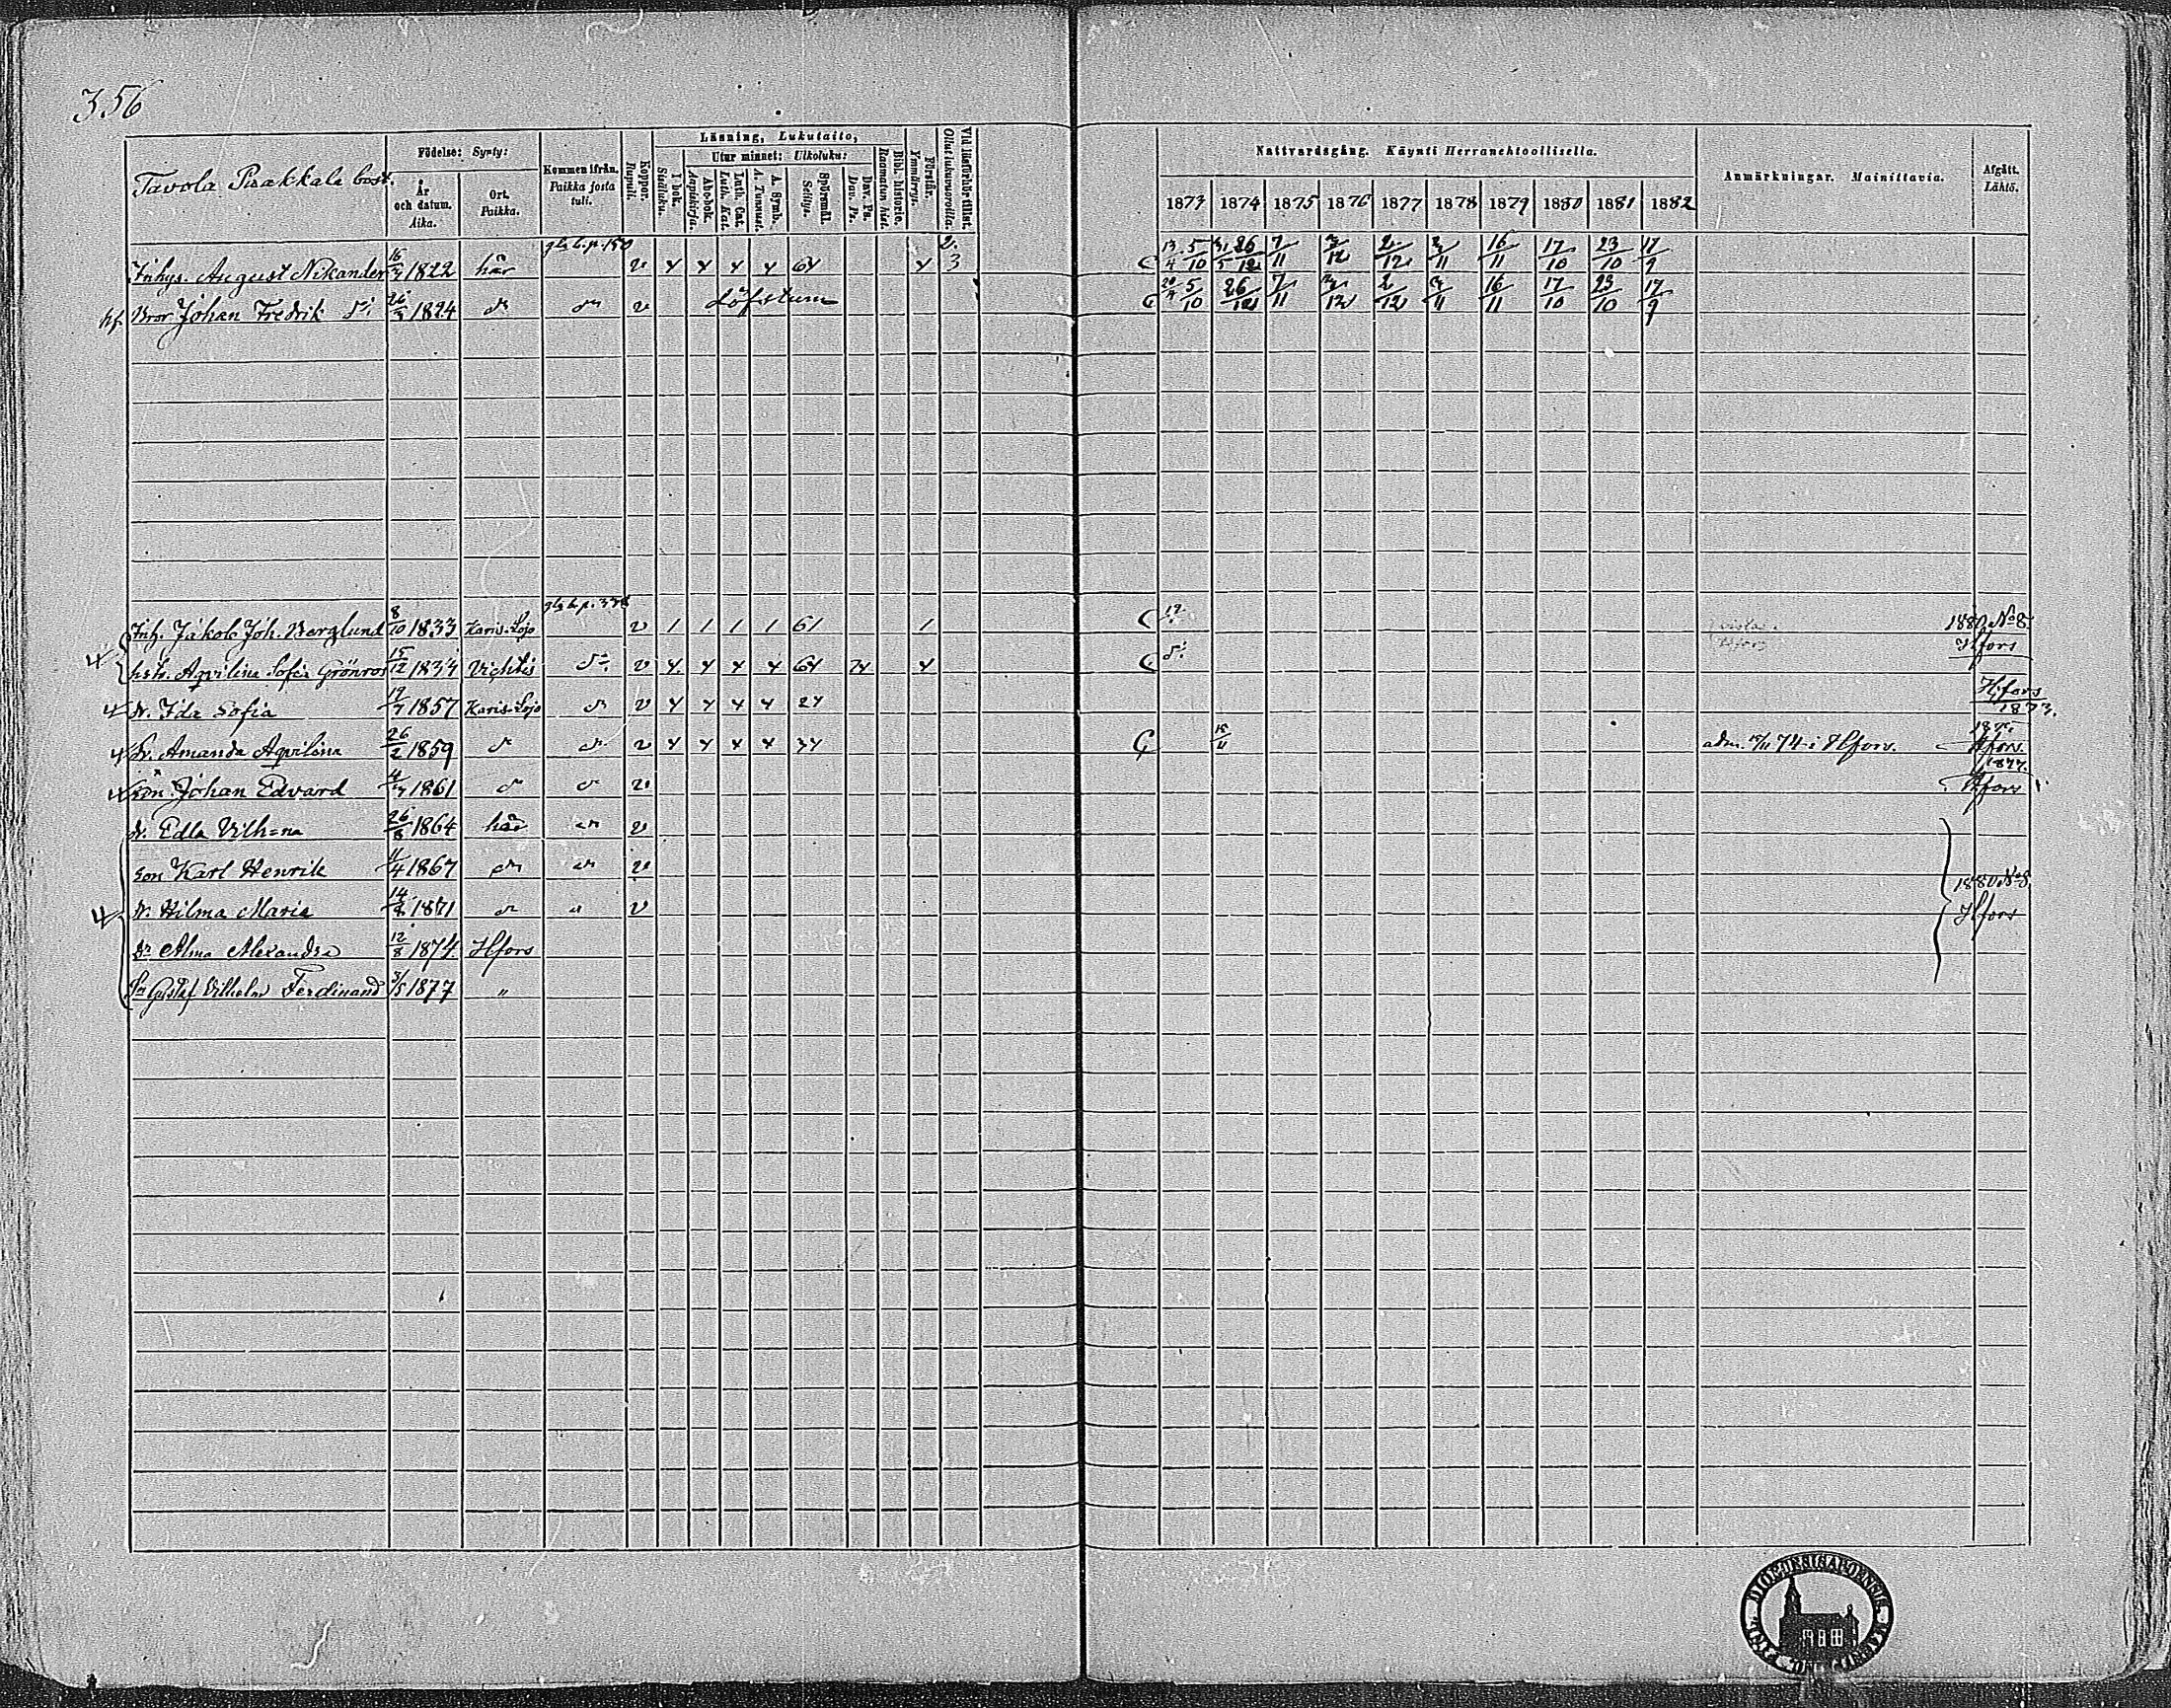 356
Tavola Pirakkala bost.
Födelse: Synty:
År och datum. Aika.
Ort. Paikka.
Kommen ifrån. Paikka josta tuli.
Koppor. Ruppuli.
Läsning, Lukutaito,
I bok. Sisäluku.
Utur minnet: Ulkoluku:
Abcbok. Aapiskirja.
Luth. Cat. Luth. Kat.
A. Symb. A. Tunnust.
Spörsmål. Selitys.
Dav. Ps. Dav. Ps.
Bibl. historie. Raamatun hist.
Förstår. Ymmärrys.
Vid läsförhör tillst. Ollut lukuvuoroilla.
Nattvardsgång. Käynti Herranehtoollisella.
1873 1874 1875 1876 1877 1878 1879 1880 1881 1882
Anmärkningar. Mainittavia.
Afgått. Lähtö.
Inhys. August Nikander 16/4 1822 här gla b. p. 150 v 4 4 4 4 64 4 2. 3 C 13/4 5/10 31/5 26/12 7/11 3/12 2/12 3/11 16/11 17/10 23/10 17/9
Bror Johan Fredrik d:o 1824 v Löfstum C 20/4 5/10 26/12 7/11 3/12 2/12 3/11 16/11 17/10 23/10 17/9
Inh. Jakob Joh. Berglund 8/10 1833 Karis-Lojo gla b. p. 338 v 1 1 1 1 61 1 C 19 1880 No 8
hstr. Aqvilina Sofia Grönros 15/12 1834 Vichtis d:o v 4 4 4 4 64 74 4 C d:o Hfors
dr. Ida Sofia 19/7 1857 Karis-Lojo v 4 4 4 4 24 Hfors 1873.
dr. Amanda Aqvilina 26/2 1859 v 4 4 4 4 34 C 15/11 adm. 15/11 74 i Hfors. 1875 Hfors.
son Johan Edvard 4/7 1861 v 1877. Hfors
dr. Edla Vilh=na 26/8 1864 här v
son Karl Henrik 11/4 1867 v
dr. Hilma Maria 1871 v 1880 No 8 Hfors
dr Alma Alexandra 12/8 1874. Hfors
sn Gustaf Vilhelm Ferdinand 3/5 1877 "
DIOECESIS ABOENSIS